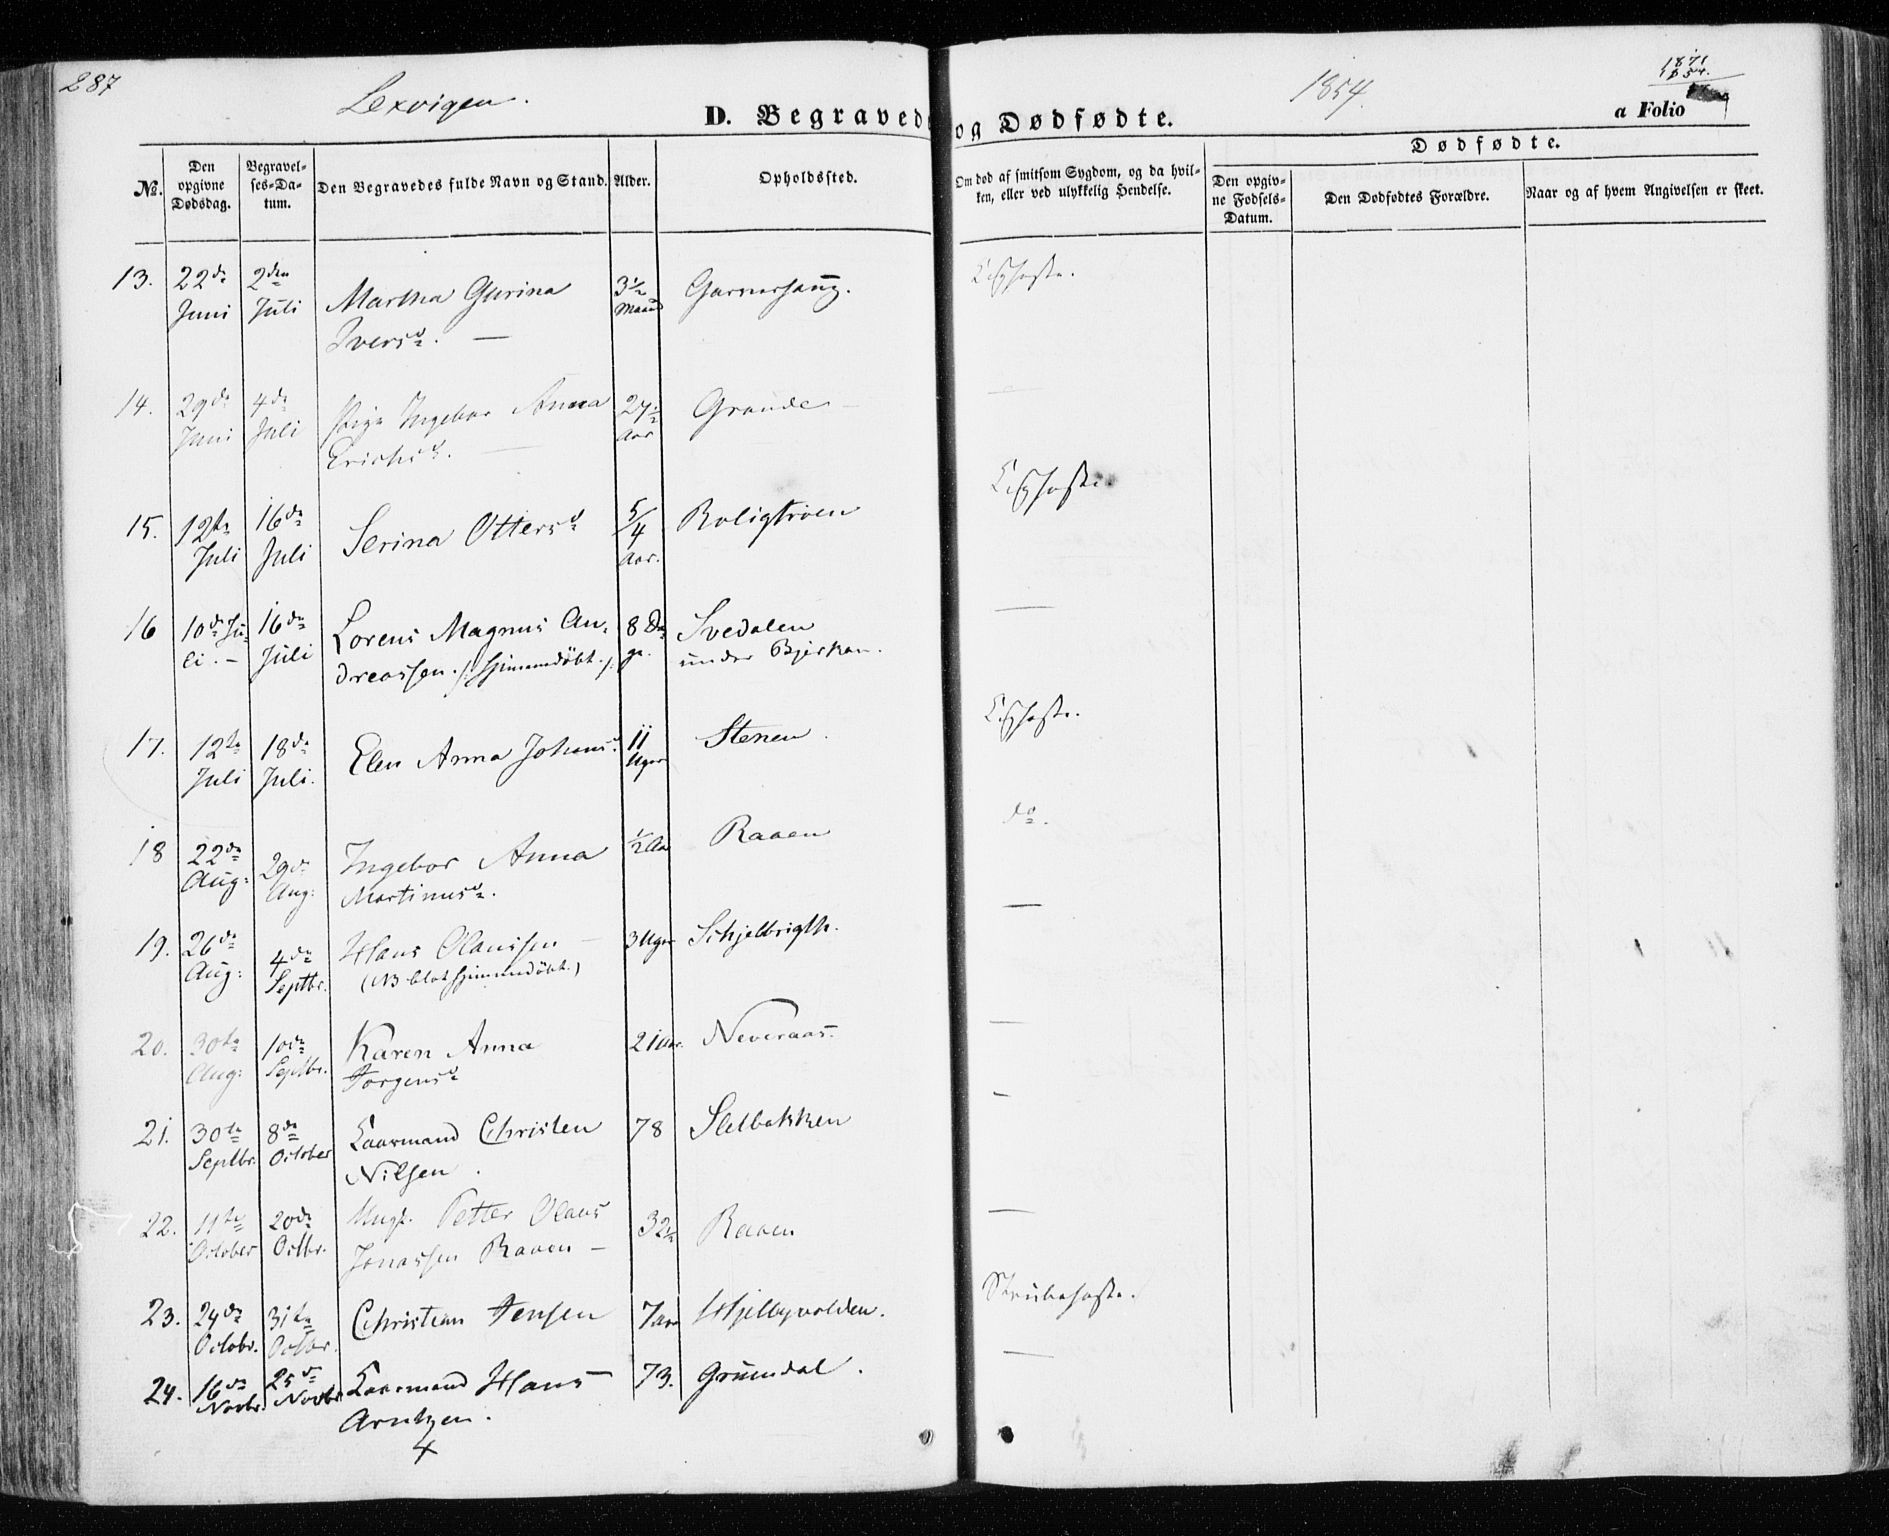 287
Lexvigen.
1854.
D. Begravede og Dødfødte.
a Folio
Dødfødte.
No.
Den opgivne Dødsdag.
Begravelses-Datum.
Den Begravedes fulde Navn og Stand.
Alder.
Opholdssted.
Om død af smitsom Sygdom, og da hvilken, eller ved ulykkelig Hendelse.
Den opgivne Fødsels-Datum.
Den Dødfødtes Forældre.
Naar og af hvem Angivelsen er skeet.
13. 22de Juni 2den Juli Martha Gurina Iversd. — 3½ Maaned
14. 29de Juni 4de Juli Pige Ingebor Anna Erichsd. — 27½ Aar Grande —
15. 12te Juli 16de Juli Serina Ottersd 5/4 Aar. Roligtroen Kighoste.
16 10de Juli. — 16de Juli Lorens Magnus Andreassen. /: hjemmedøbt :/ 8 Dage. Svedalen under Bjerkan. —
17. 12te Juli 18de Juli. Elen Anna Johansd. 11 Uger Stenen. Kighoste.
18 22de Aug: 29de Aug: Ingebor Anna Martinusd. ½ Aar Raaen do.
19. 26de Aug: 4de Septbr. Hans Olaussen — (NB blot hjemmedøbt.) 3 Uger —
20. 30te Aug: 10de Septbr. Karen Anna Jørgensd 21 Aar. Neveraas. —
21. 30te Septbr. 8de October Kaarmand Christen Nilsen. 78 Sletbakken -
22. 11te October 20de Octbr. Ungk. Petter Olaus Jonassen Raaen — 32½ Raaen —
23. 24de Octobr. 31te Octbr. Christian Jensen 7 Aar Hjellyvolden. Strubehoste.
24. 16de Novbr. 25de Novbr Kaarmand Hans Arntzen. 73. Grøndal. —
4